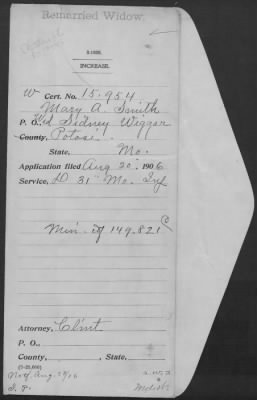 Remarried Widow.
3-1820.
INCREASE.
W Cert. No. 15.954
Mary A. Smith
P. O., Wid Sidney Wigger
County, Potosi
State, Mo.
Application filed Aug 20, 1906
Service, D 31" Mo. Inf
Min. of 149.821 C
Attorney, Clmt
P. O.,
County, , State,
Notf. Aug. 28/06